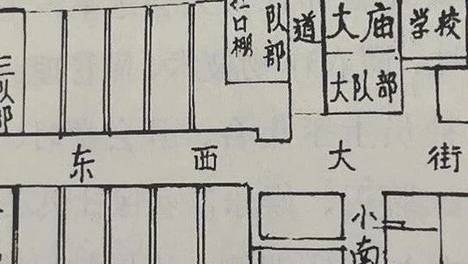 三队部
牲口棚
队部
道
大庙
大队部
学校
东西大街
小南